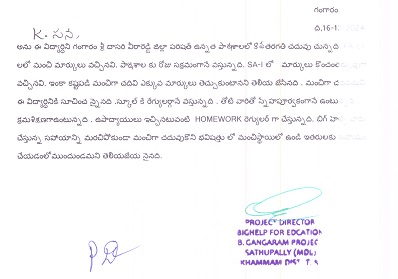 గంగారం
ది,16-12-2024
K. సునీ,
అను ఈ విద్యార్థిని గంగారం శ్రీ దాసరి వీరారెడ్డి జిల్లా పరిషత్ ఉన్నత పాఠశాలలో 6వతరగతి చదువు చున్నది
లలో మంచి మార్కులు వచ్చినవి. పాఠశాల కు రోజు సక్రమంగానే వస్తున్నది. SA-I లో మార్కులు కొంచం
వచ్చినవి. ఇంకా కష్టపడి మంచిగా చదివి ఎక్కువ మార్కులు తెచ్చుకుంటానని తెలియ జేసినది . మంచిగా
ఈ విద్యార్థినికి సూచించ నైనది .స్కూల్ కి రేగులర్గానే వస్తున్నది . తోటి వారితో స్నేహపూర్వకంగానే ఉంటు
క్రమశిక్షణగాఉంటున్నది . ఉపాద్యాయులు ఇచ్చినటువంటి HOMEWORK రెగ్యులర్ గా చేస్తున్నది. బిగ్
చేస్తున్న సహాయాన్ని మరచిపోకుండా మంచిగా చదువుకొని భవిషత్తు లో మంచిస్థాయిలో ఉండి ఇతరులకు సహాయం
చేయడంలోముందుండమని తెలియజేయ నైనది.
PROJECT DIRECTOR
BIGHELP FOR EDCATION
B. GANGARAM PROJEC
SATHUPALLY (MDL)
KHAMMAM DIST. T.S